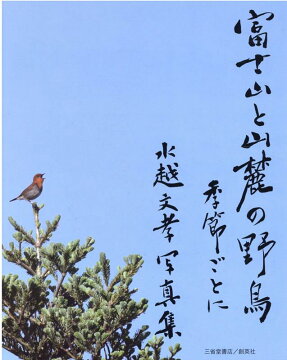 富士山と山麓の野鳥
季節ごとに
水越文孝写真集
三省堂書店／創英社